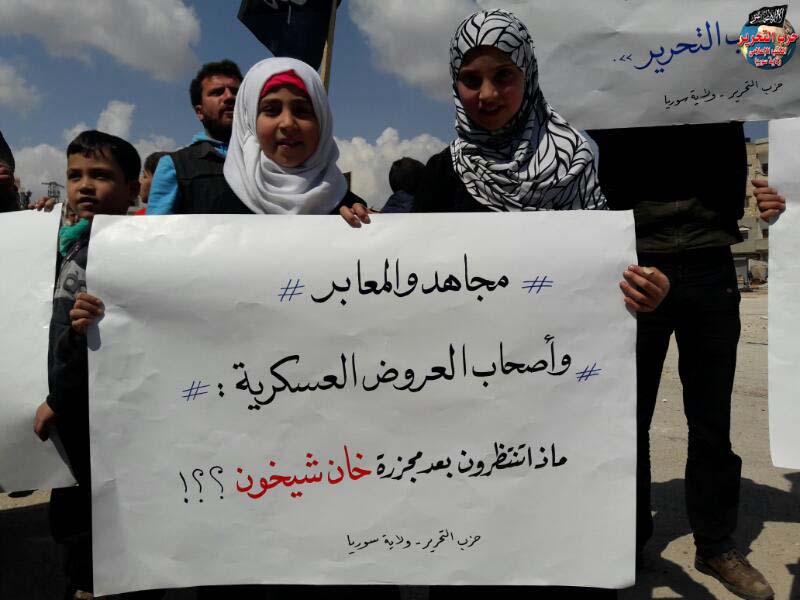 التحرير ».
حزب التحرير - ولاية سورية
حزب التحرير
المكتب الإعلامي
ولاية سوريا
# مجاهدو المعابر #
# وأصحاب العروض العسكرية : #
ماذا تنتظرون بعد مجزرة خان شيخون ؟؟؟!
حزب التحرير - ولاية سوريا